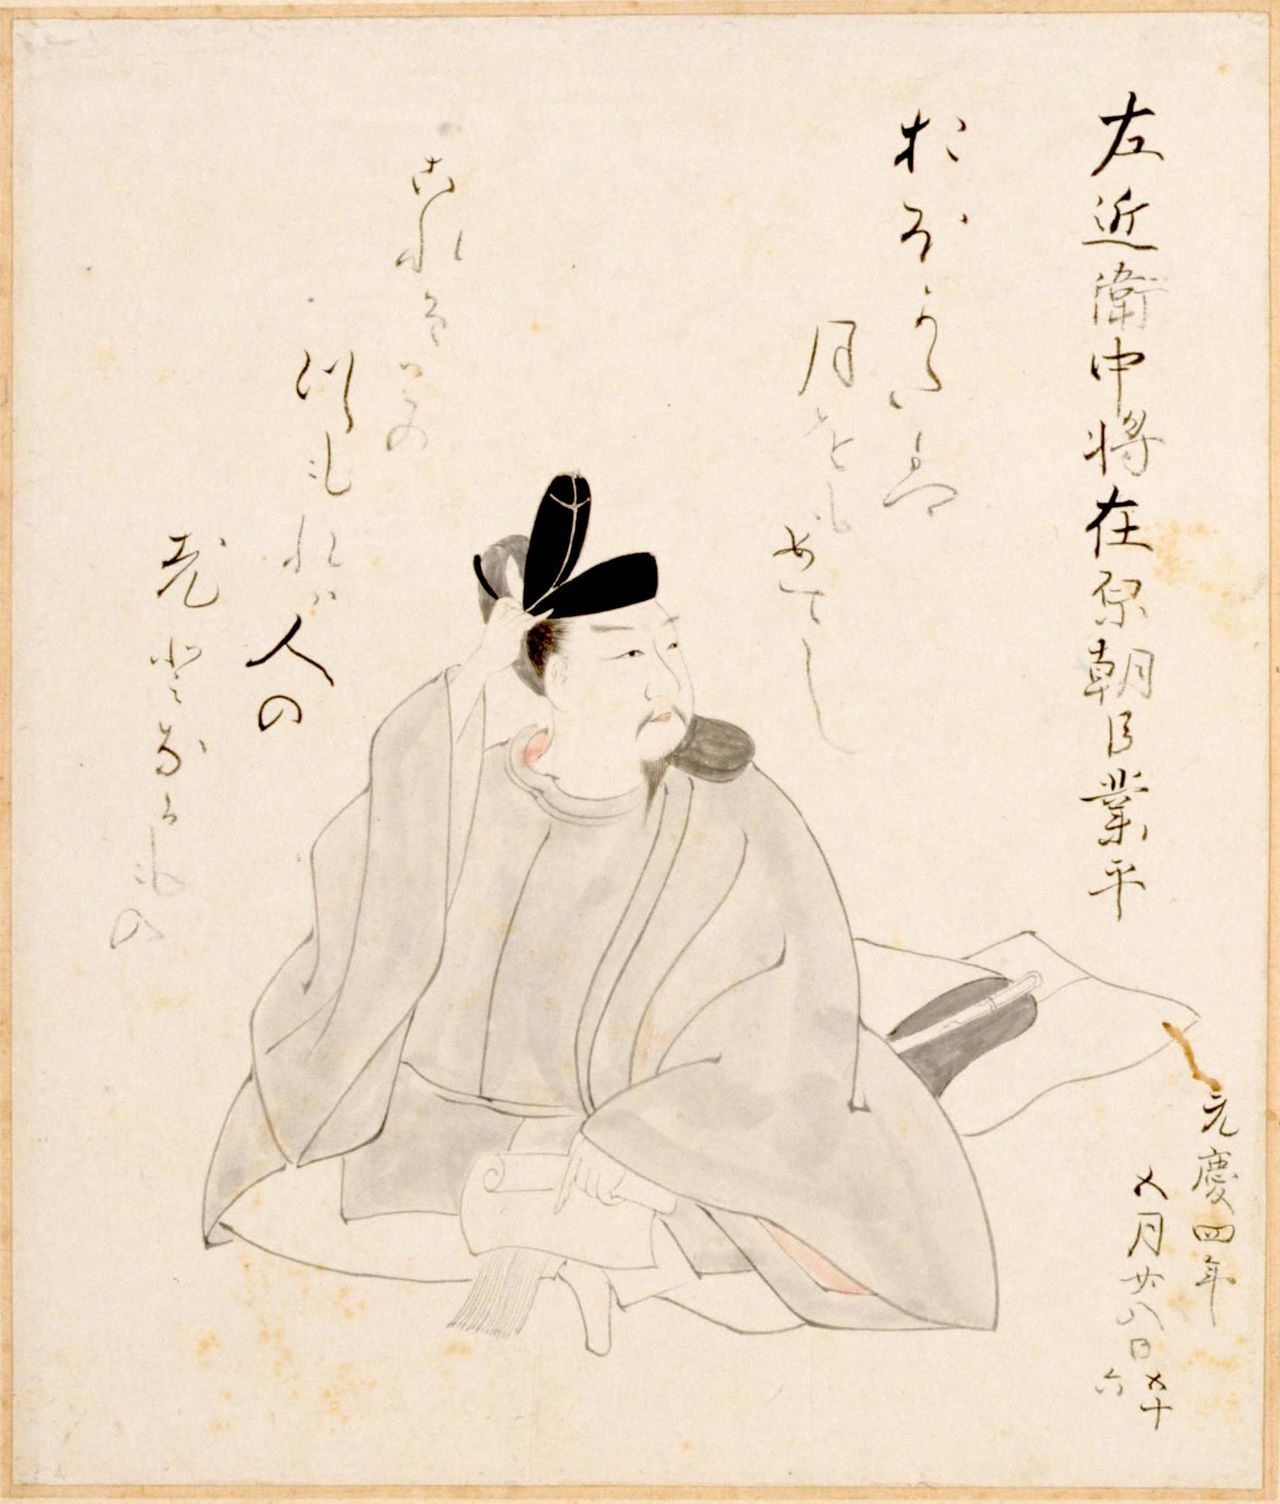 左近衛中将在原朝臣業平
おほかたは
月をもめてし
これそこの
つもれは人の
老となるもの
元慶四年
五月廿八日五十六